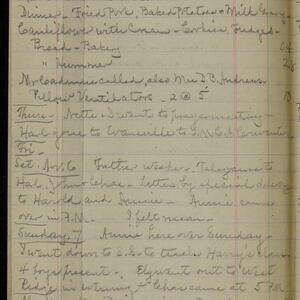 Dinner - Fried Pork, Baked Potatoes + Milk Gravy
Cauliflower with Cream - Cookies, Fudged
Bread - Bakery 04
" Hummer 28
Mr. called, also Mrs. D.B. Andrews
Pillow Ventilators - 2 @ 5 10
Thurs - Nettie + I went to prayer meeting -
Harl gone to Evansville to Y.M.C.A. Convention
Fri -
Sat. Nov. 6 Father Weaker. Telephoned to
Harl, John + Chas. - Letter by special delivery
to Harold and Annie came
over in P.M. I felt mean -
Sunday 7 Annie here over Sunday -
I went down to S.S. to teach Harry's class
4 boys present - went out to West
Ridge in evening - Chas came at 5 P.M.